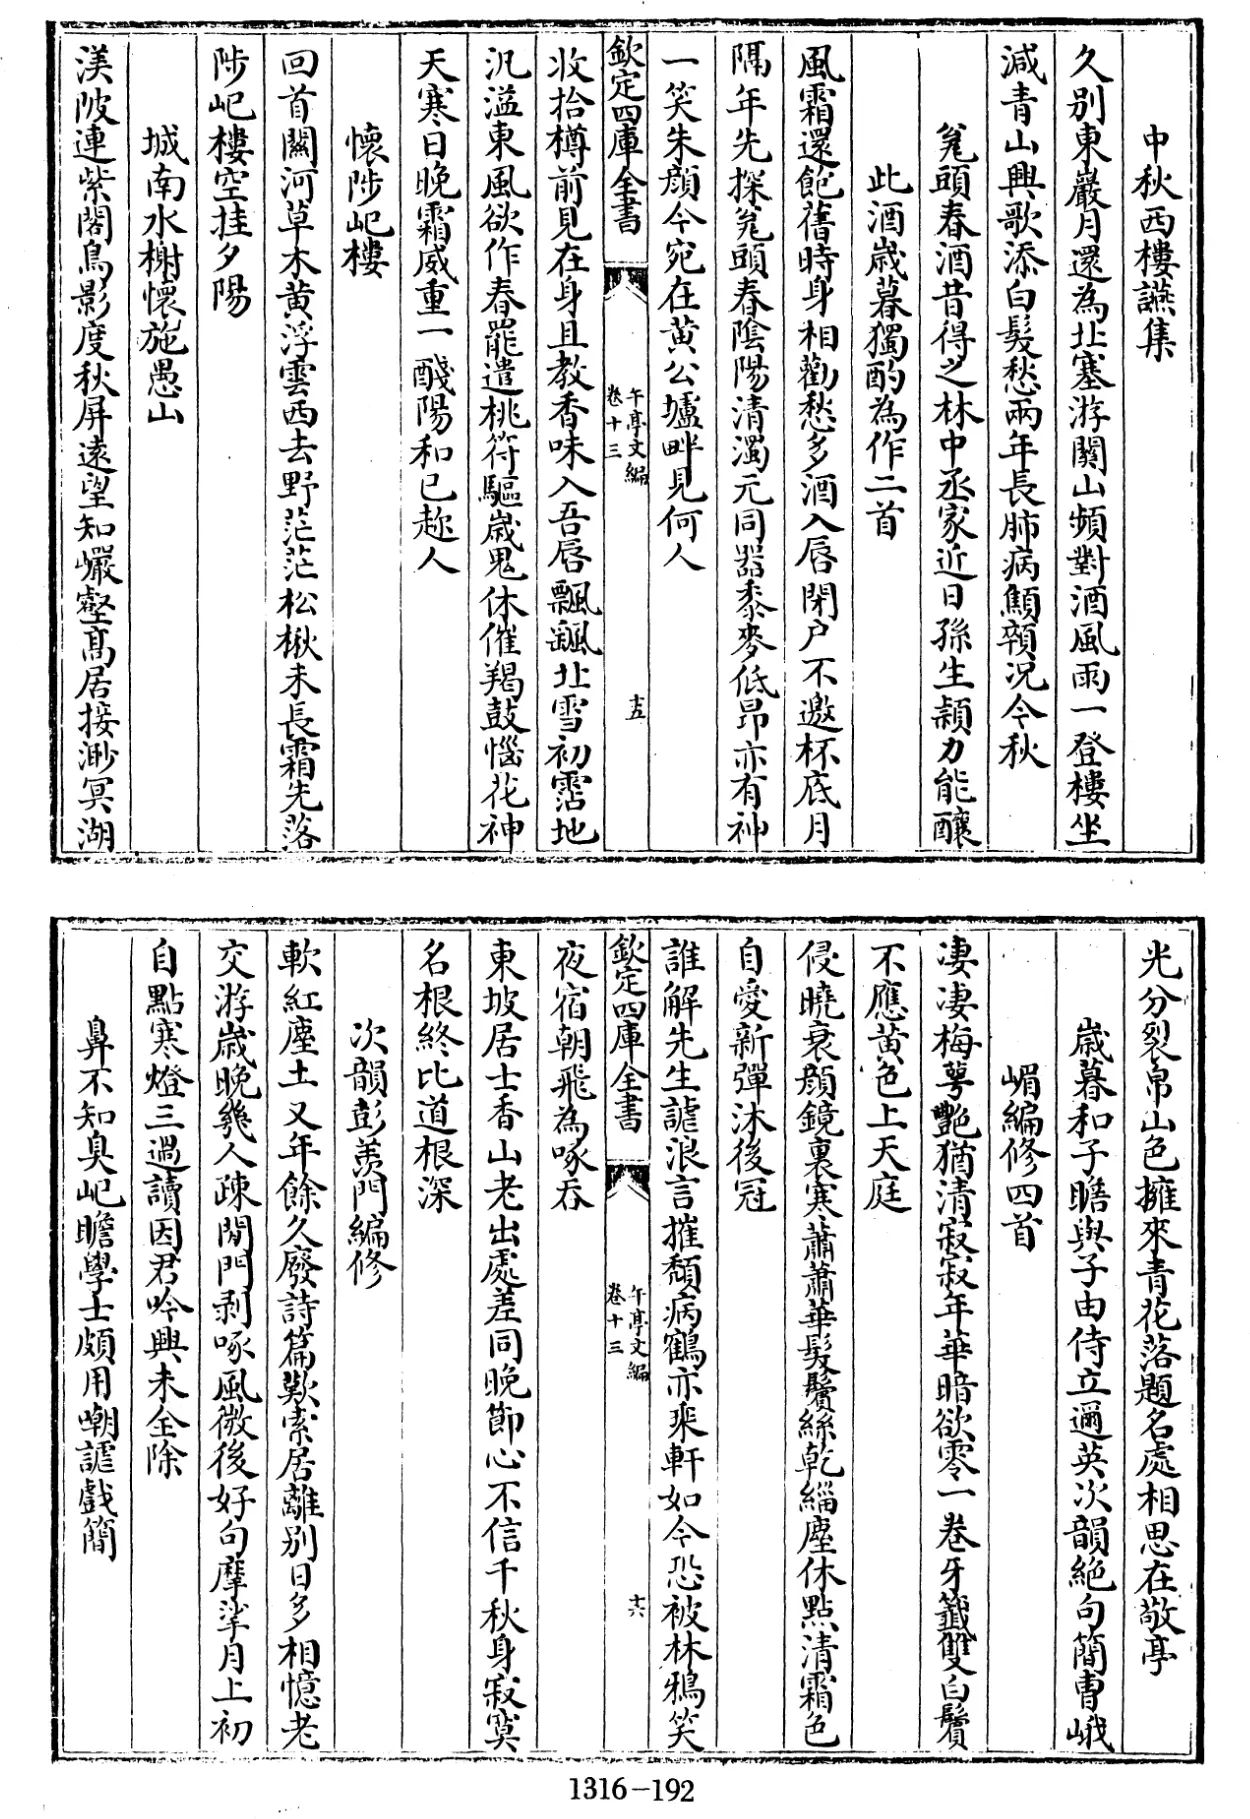 中秋西樓讌集
久別東巖月還為北塞游關山頻對酒風雨一登樓坐
減青山興歌添白髮愁兩年長肺病顦顇況今秋
甕頭春酒昔得之林中丞家近日孫生顓力能釀
此酒歲暮獨酌為作二首
風霜還飽舊時身相勸愁多酒入唇閉户不邀杯底月
隔年先探甕頭春陰陽清濁元同器黍麥低昂亦有神
一笑朱顔今宛在黄公壚畔見何人
欽定四庫全書
午亭文編
卷十三
十五
收拾樽前見在身且教香味入吾唇飄飄北雪初霑地
汎溢東風欲作春罷遣桃符驅歲鬼休催羯鼓惱花神
天寒日晩霜威重一醆陽和已趂人
懷陟屺樓
回首關河草木黄浮雲西去野茫茫松楸未長霜先落
陟屺樓空挂夕陽
城南水榭懷施愚山
渼陂連紫閣鳥影度秋屏遠望知巖壑髙居接渺冥湖
光分裂帛山色擁來青花落題名處相思在敬亭
歲暮和子瞻與子由侍立邇英次韻絶句簡曹峨
嵋編修四首
凄凄梅萼艷猶清寂寂年華暗欲零一卷牙籤雙白鬢
不應黄色上天庭
侵曉衰顔鏡裏寒蕭蕭華髮鬢絲乾緇塵休點清霜色
自愛新彈沐後冠
誰解先生謔浪言摧頽病鶴亦乘軒如今恐被林鴉笑
欽定四庫全書
午亭文編
卷十三
十六
夜宿朝飛為啄吞
東坡居士香山老出處差同晩節心不信千秋身寂寞
名根終比道根深
次韻彭羨門編修
軟紅塵土又年餘久廢詩篇歎索居離别日多相憶老
交游歲晩幾人疎閒門剥啄風微後好句摩挲月上初
自點寒燈三過讀因君吟興未全除
鼻不知臭屺瞻學士頗用嘲謔戲簡
1316-192